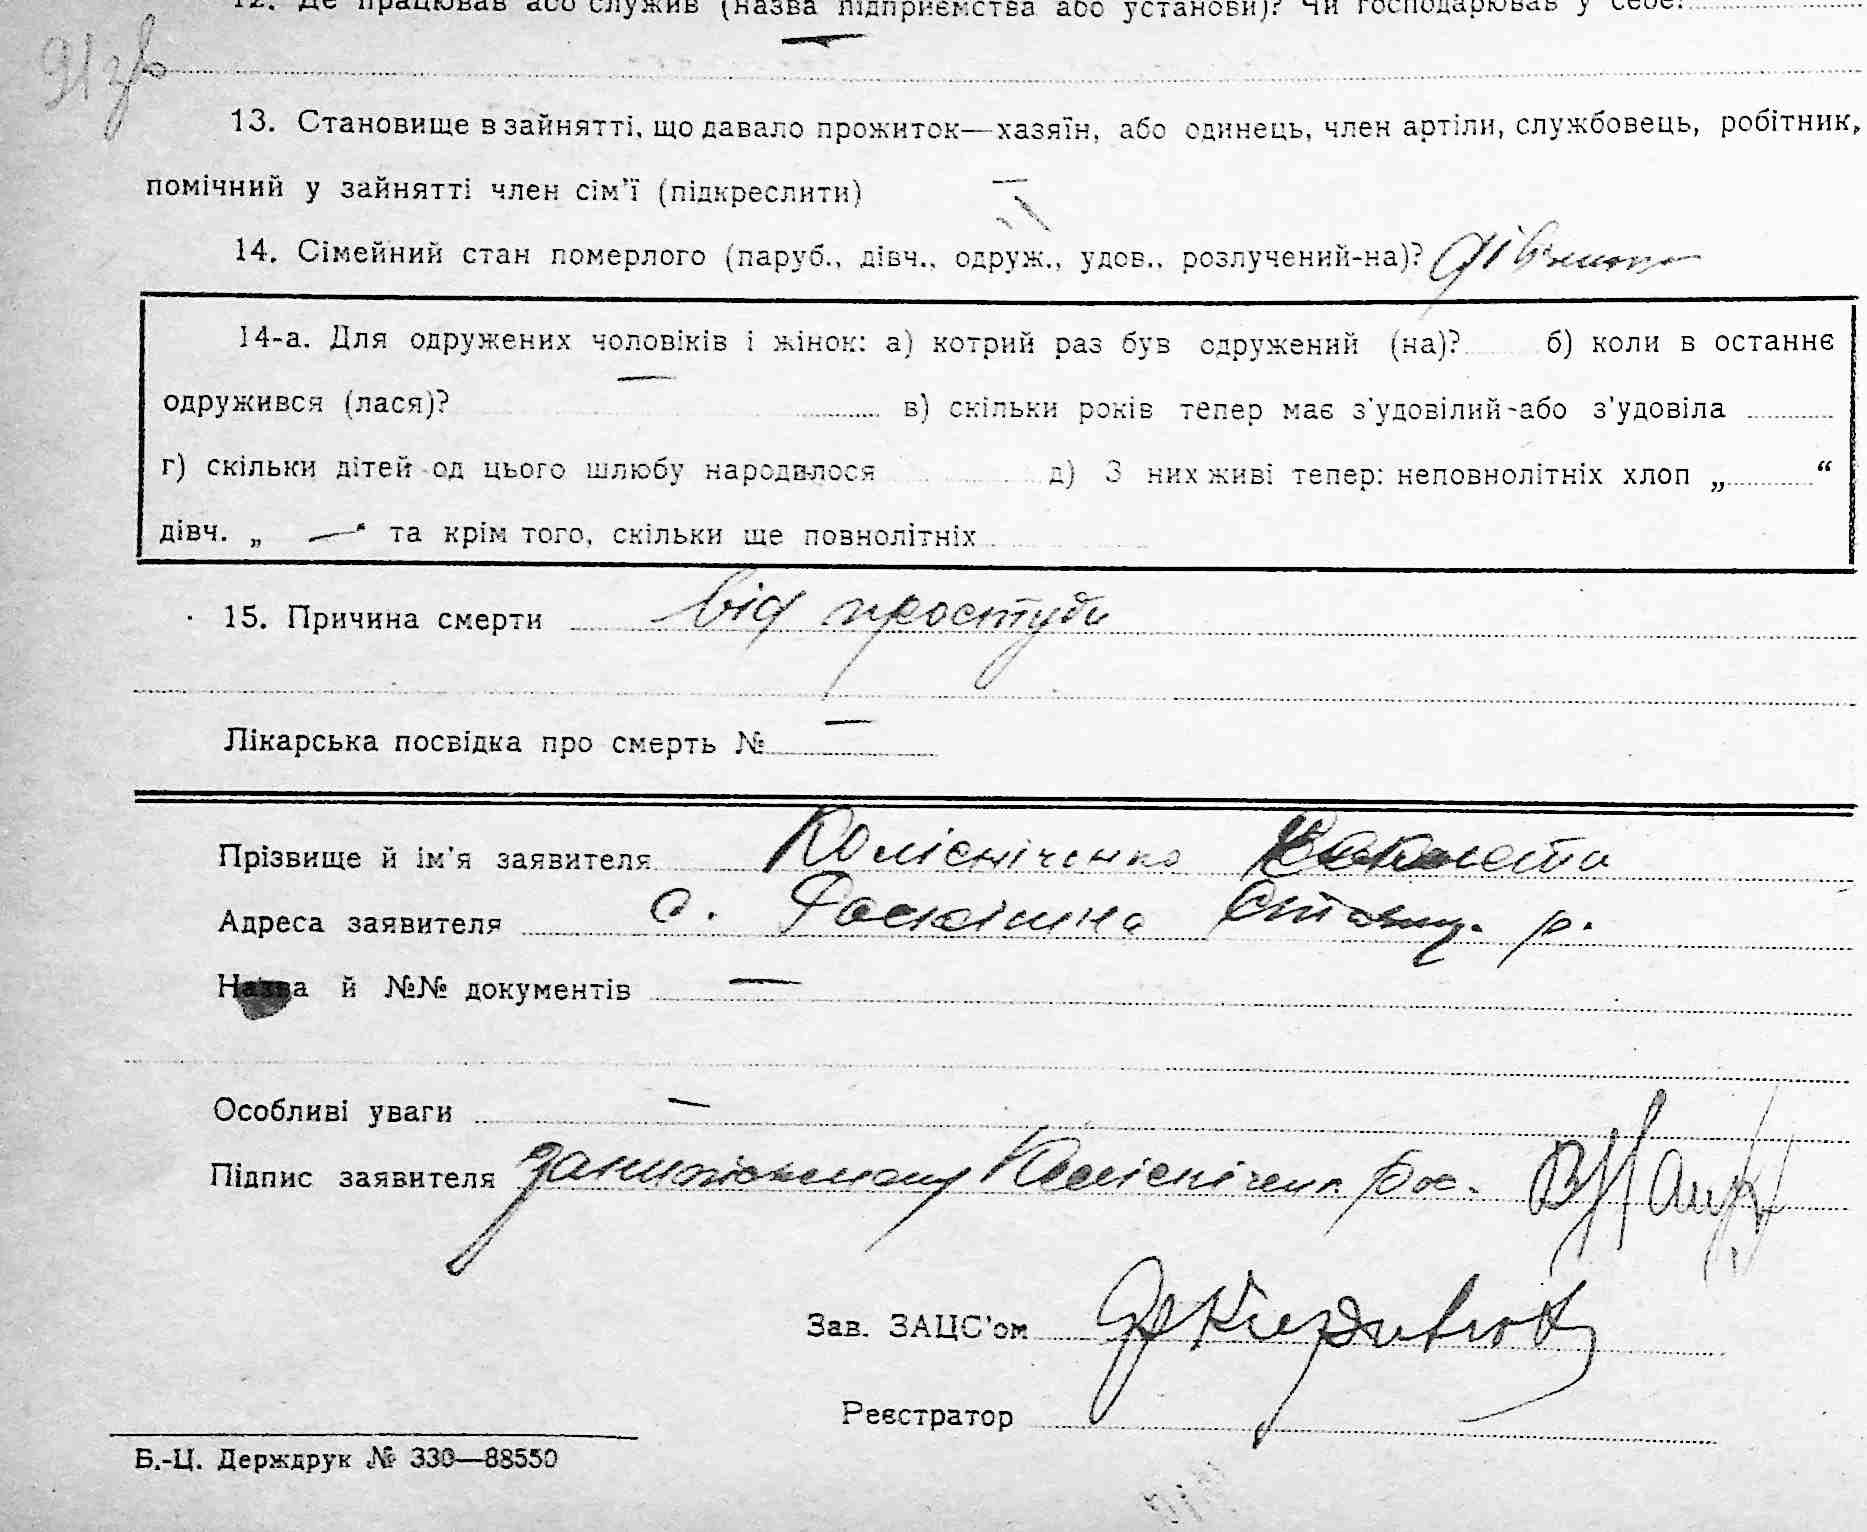 12. Де працював або служив (назва підприємства або установи)? Чи господарював у себе?
—
91 зв
13. Становище в зайнятті, що давало прожиток—хазяїн, або одинець, член артіли, службовець, робітник,
помічний у зайнятті член сім'ї (підкреслити) —
14. Сімейний стан померлого (паруб., дівч., одруж., удов., розлучений-на)? дівчина
14-а. Для одружених чоловіків і жінок: а) котрий раз був одружений (на)? б) коли в останнє
одружився (лася)? — в) скільки років тепер має з'удовілий-або з'удовіла
г) скільки дітей од цього шлюбу народилося д) З них живі тепер: неповнолітніх хлоп „ “
дівч. „ — “ та крім того, скільки ще повнолітніх
15. Причина смерти від простуди
Лікарська посвідка про смерть № —
Прізвище й ім'я заявителя Колісніченко
Адреса заявителя с. р.
Назва й №№ документів —
Особливі уваги —
Підпис заявителя Колісніченк
Зав. ЗАЦС'ом
Реєстратор
Б.-Ц. Держдрук № 330—88550